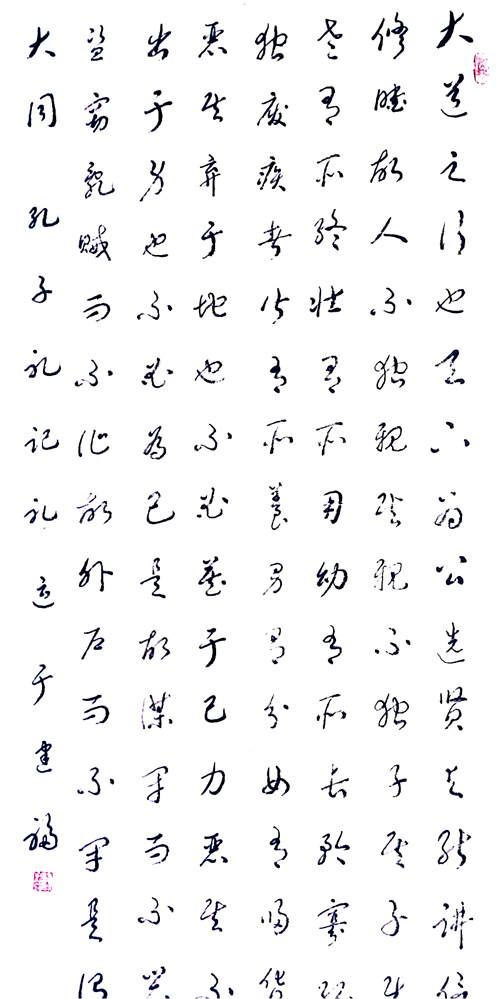 大道之行也天下为公选贤与能讲信
修睦故人不独亲其亲不独子其子使
老有所终壮有所用幼有所长矜寡孤
独废疾者皆有所养男有分女有归货
恶其弃于地也不必藏于己力恶其不
出于身也不必为己是故谋闭而不兴
盗窃乱贼而不作故外户而不闭是谓
大同 孔子礼记礼运 于建福